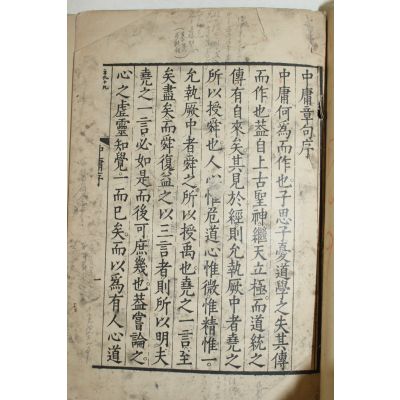 中庸章句序
中庸何爲而作也子思子憂道學之失其傳
而作也葢自上古聖神繼天立極而道統之
傳有自來矣其見於經則允執厥中者堯之
所以授舜也人心惟危道心惟微惟精惟一
允執厥中者舜之所以授禹也堯之一言至
矣盡矣而舜復益之以三言者則所以明夫
堯之一言必如是而後可庶幾也葢嘗論之
心之虛靈知覺一而已矣而以爲有人心道
中庸序
一